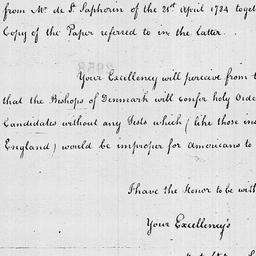 from Mr. de St. Saphorin of the 21st April 1784 toget
Copy of the Paper referred to in the Latter.
Your Excellency will perceive from t
that the Bishops of Denmark will confer holy Orde
Candidates without any Tests which (like those ins
England) would be improper for americans to
I have the Honor to be with
Your Excellency's